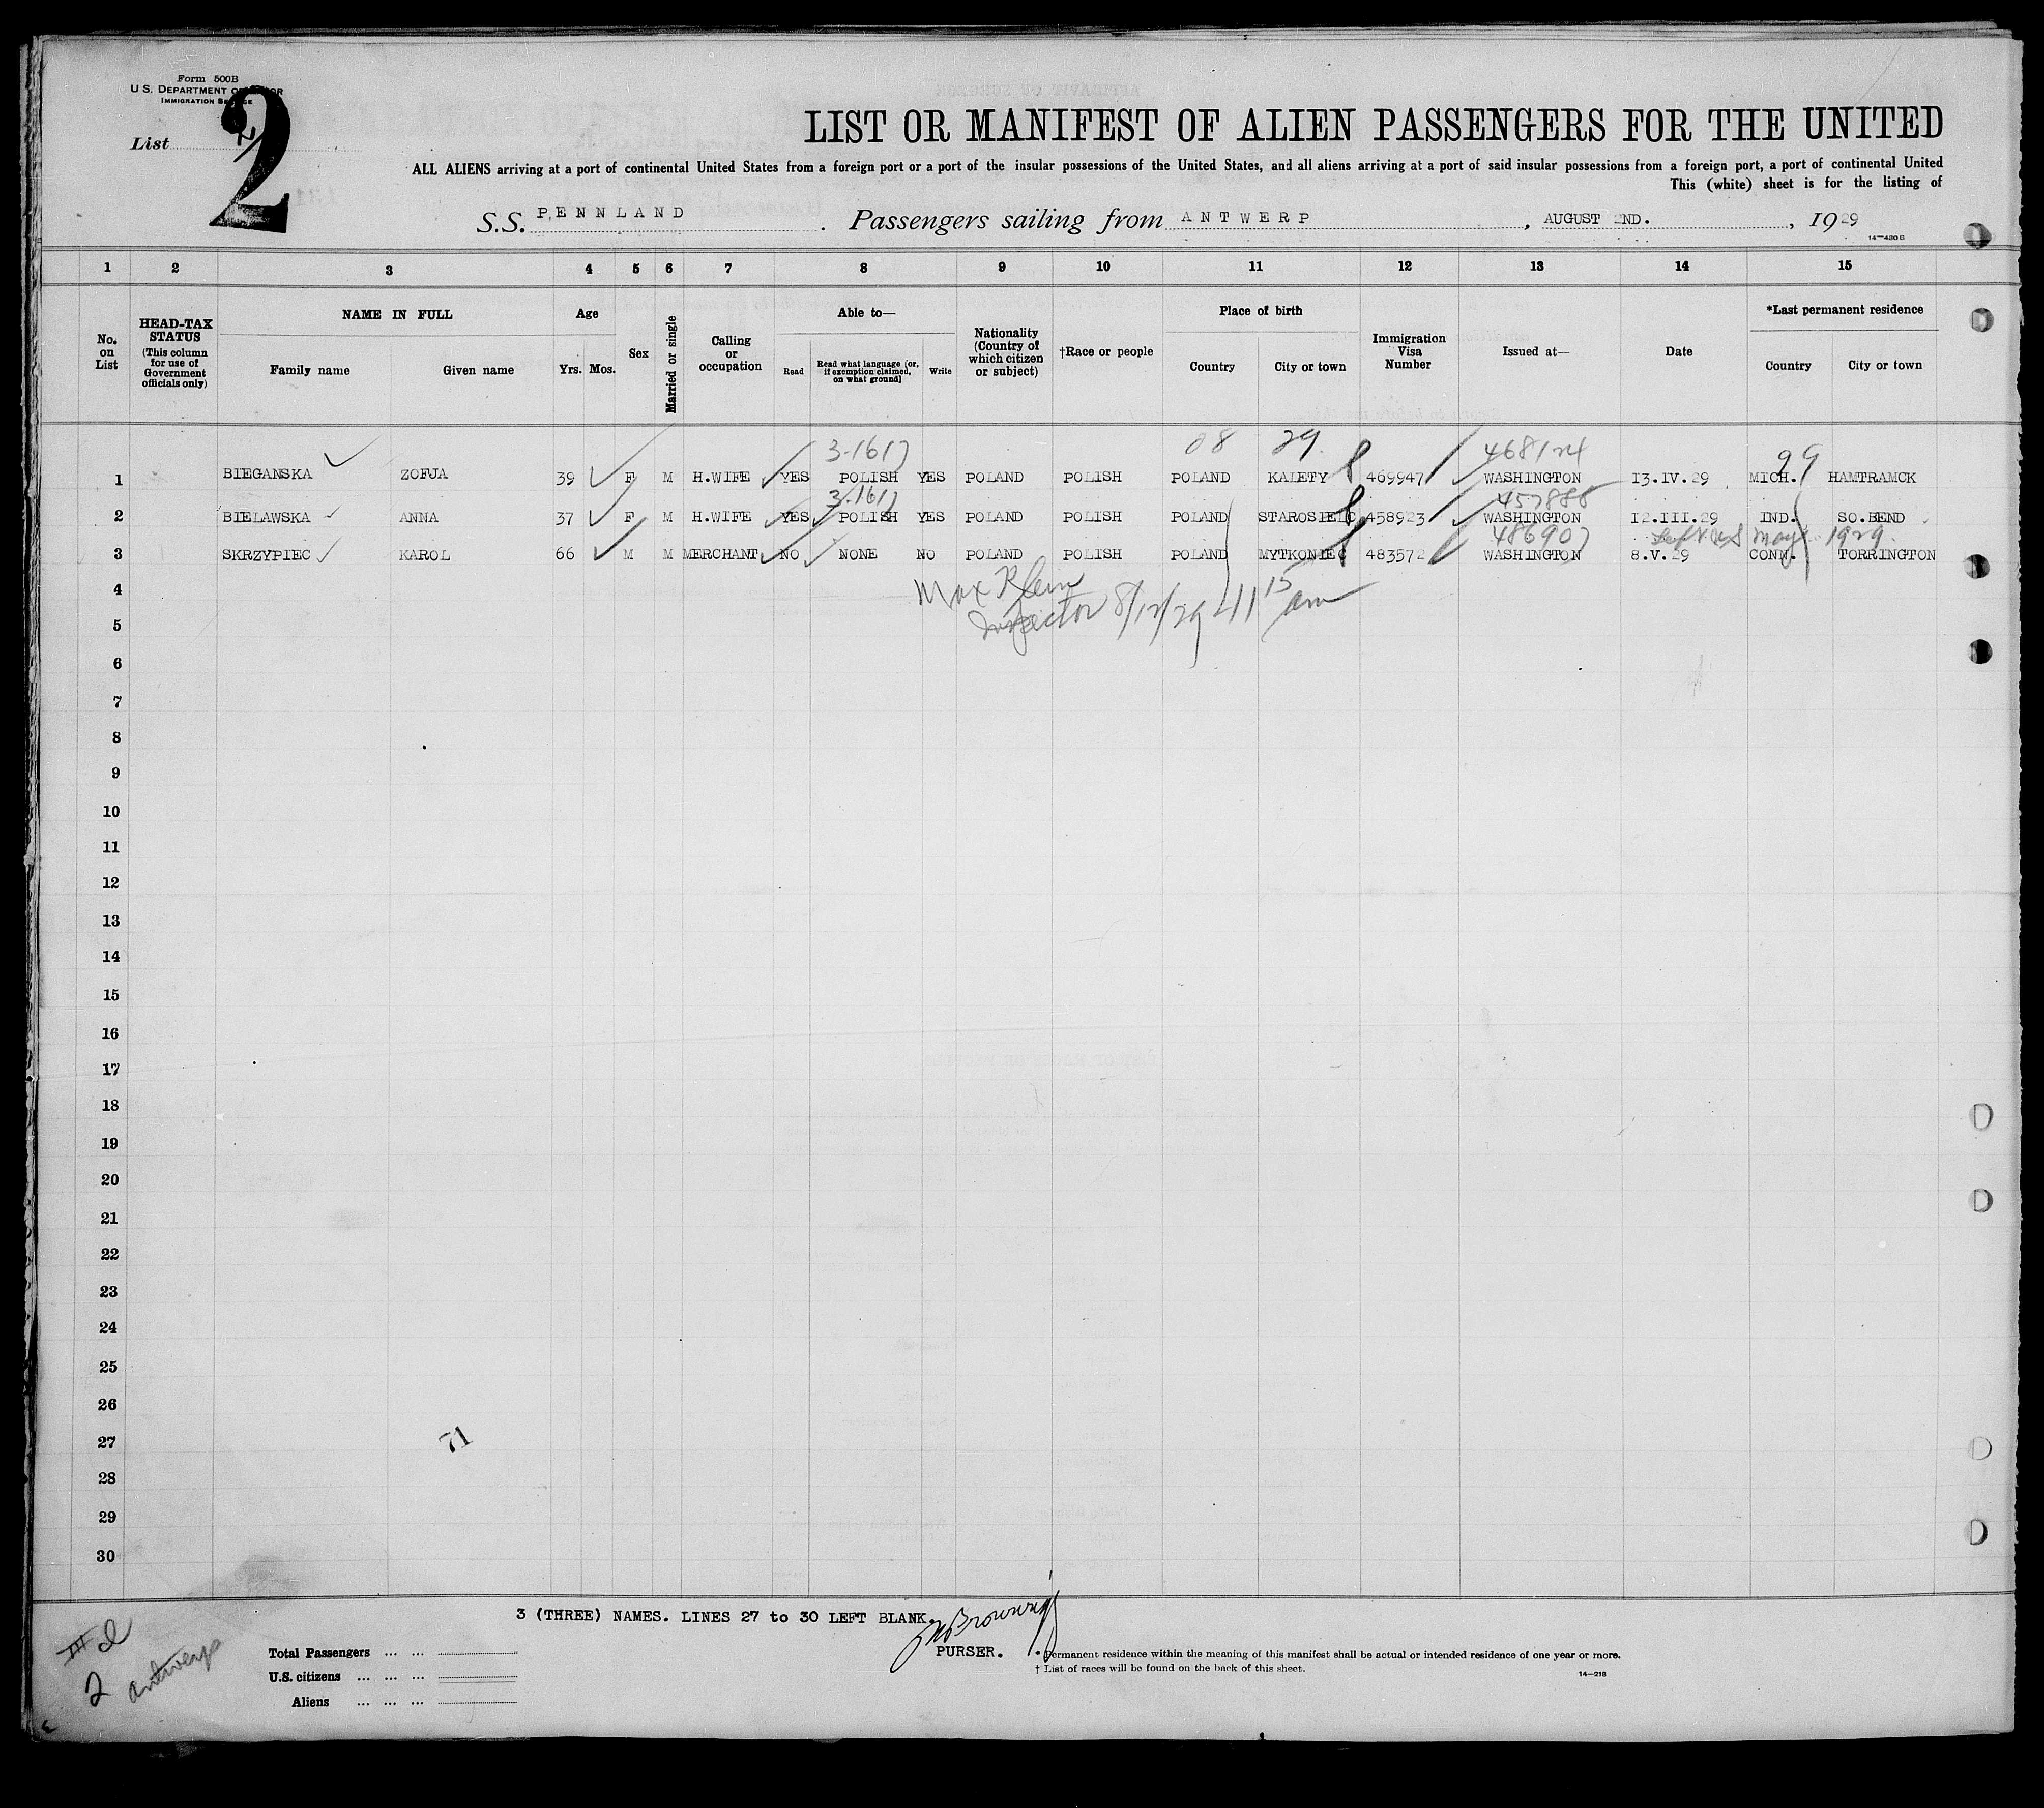 Form 500B
U. S. DEPARTMENT OF LABOR
IMMIGRATION SERVICE
List 2
LIST OR MANIFEST OF ALIEN PASSENGERS FOR THE UNITED
ALL ALIENS arriving at a port of continental United States from a foreign port or a port of the insular possessions of the United States, and all aliens arriving at a port of said insular possessions from a foreign port, a port of continental United
This (white) sheet is for the listing of
S.S. PENNLAND . Passengers sailing from ANTWERP , AUGUST 2ND. , 1929
14—430 B
1 2 3 4 5 6 7 8 9 10 11 12 13 14 15
No. on List
HEAD-TAX STATUS (This column for use of Government officials only)
NAME IN FULL
Family name Given name
Age
Yrs. Mos.
Sex
Married or single
Calling or occupation
Able to—
Read
Read what language (or, if exemption claimed, on what ground)
Write
Nationality (Country of which citizen or subject)
†Race or people
Place of birth
Country City or town
Immigration Visa Number
Issued at—
Date
*Last permanent residence
Country City or town
3-1617 08 29. 468124 99
1 BIEGANSKA ZOFJA 39 F M H.WIFE YES POLISH YES POLAND POLISH POLAND KALETY 469947 WASHINGTON 13.IV.29 MICH. HAMTRAMCK
3-1617 457888
2 BIELAWSKA ANNA 37 F M H.WIFE YES POLISH YES POLAND POLISH POLAND STAROSIELC 458923 WASHINGTON 12.III.29 IND. SO.BEND
486907 Left US May 1929.
3 SKRZYPIEC KAROL 66 M M MERCHANT NO NONE NO POLAND POLISH POLAND MYTKONIEC 483572 WASHINGTON 8.V.29 CONN. TORRINGTON
4
Max Klein
Inspector 8/12/29 11 15 am
5
6
7
8
9
10
11
12
13
14
15
16
17
18
19
20
21
22
23
24
25
26
27
71
28
29
30
3 (THREE) NAMES. LINES 27 to 30 LEFT BLANK.
Browning
PURSER.
III d
2 Antwerp
Total Passengers ... ...
U.S. citizens ... ... ...
Aliens ... ... ...
* Permanent residence within the meaning of this manifest shall be actual or intended residence of one year or more.
† List of races will be found on the back of this sheet.
14—218